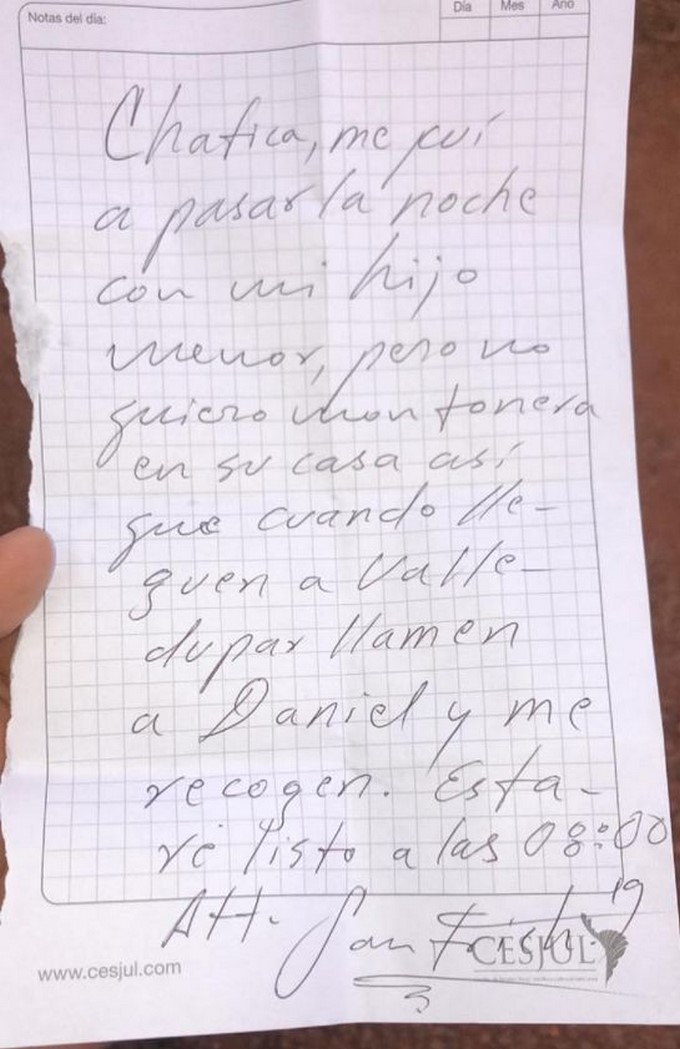 Notas del día:
Día Mes Año
Chatica, me fuí
a pasar la noche
con mi hijo
menor, pero no
quiero montonera
en su casa así
que cuando lle-
guen a Valle-
dupar llamen
a Daniel y me
recogen. Esta-
ré listo a las 08:00
Att.
CESJUL
www.cesjul.com